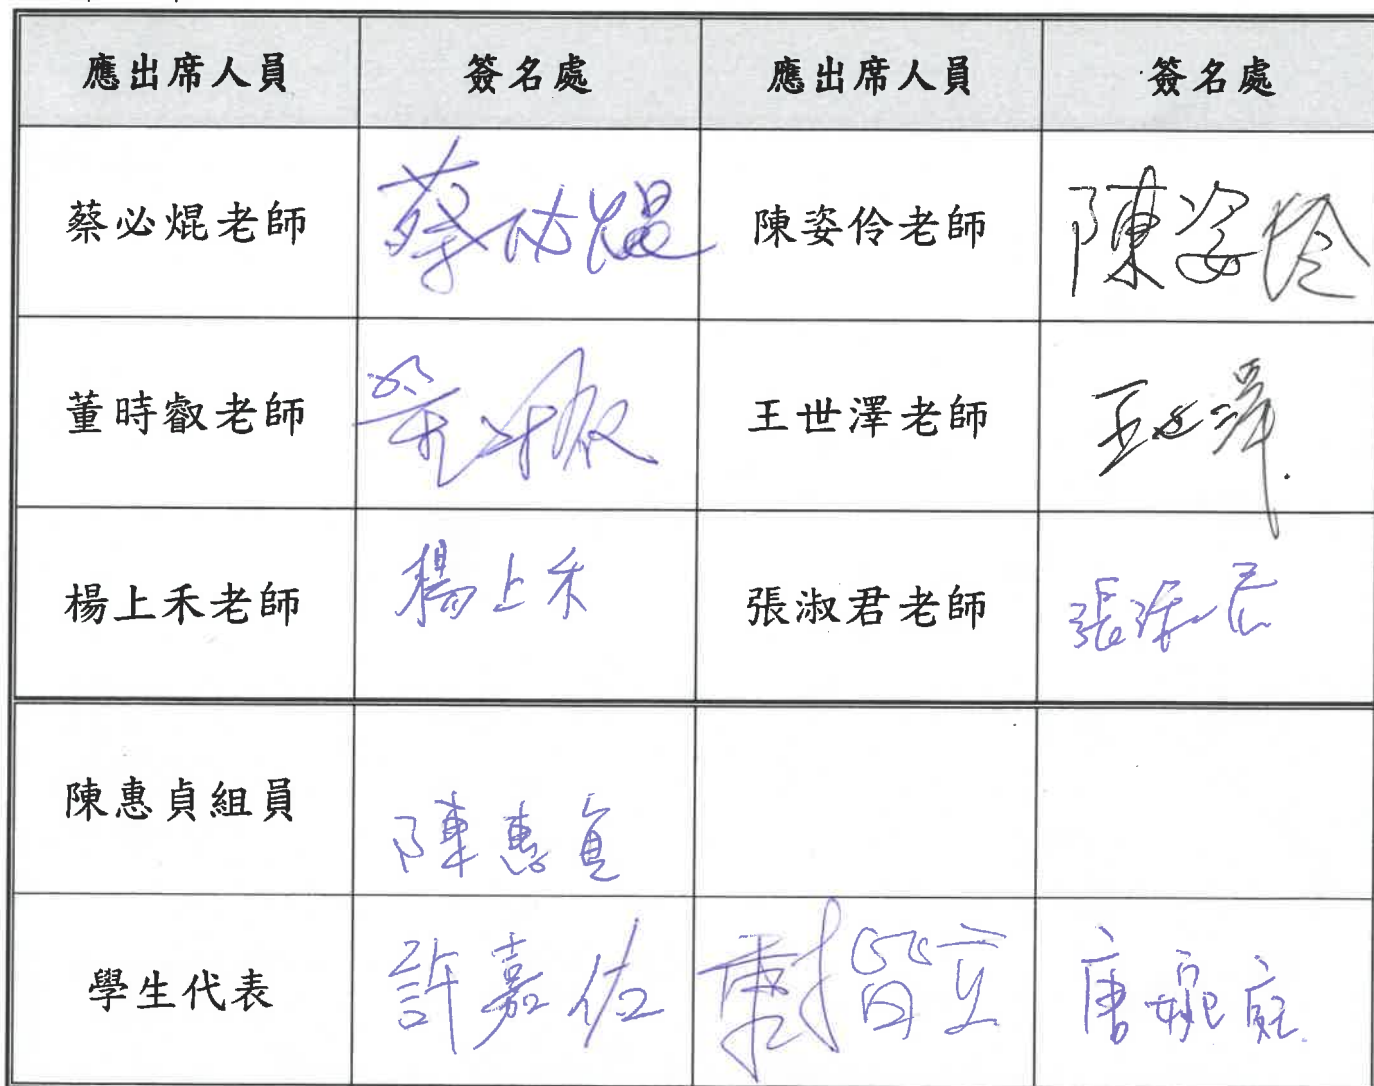 應出席人員 簽名處 應出席人員 簽名處
蔡必焜老師 蔡必焜 陳姿伶老師 陳姿伶
董時叡老師 董時叡 王世澤老師 王世澤
楊上禾老師 楊上禾 張淑君老師 張淑君
陳惠貞組員 陳惠貞
學生代表 許嘉佐